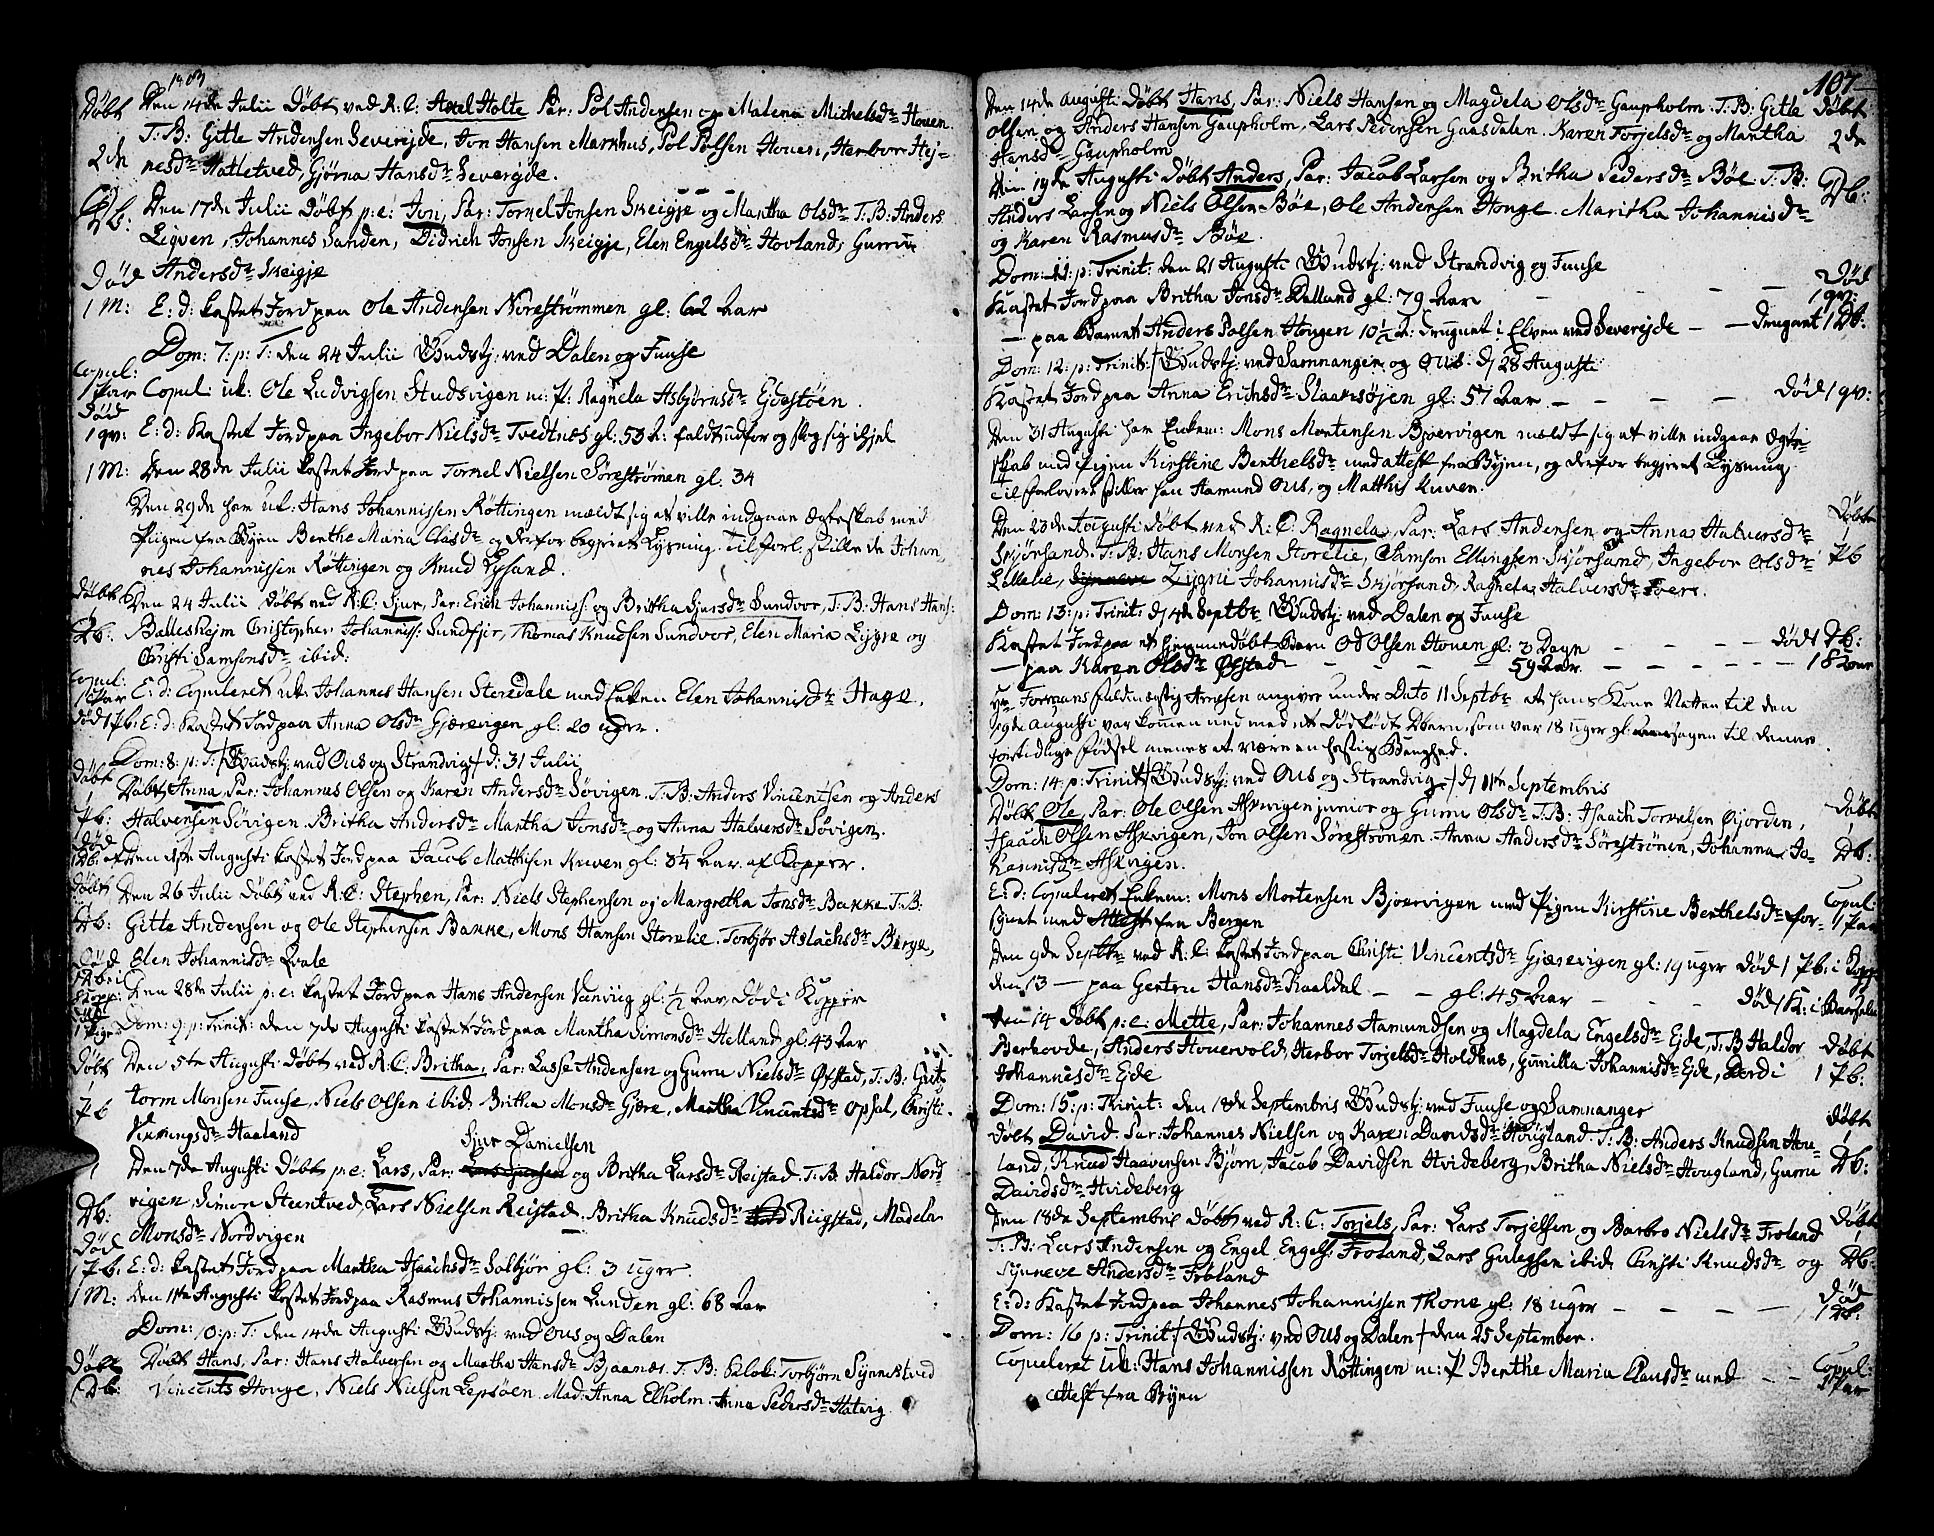 1803
Døbt Den 14de Julii Døbt ved R: C: Axel Holte Par: Pol Andersen og Malena Michelsdr Houen.
T: B: Gitle Andersen Severejde, Jon Hansen Markhus, Pol Polsen Houen, Herbor Hej-
2de nesdr Hatletved, Gjørna Hansdr Severejde.
Db: Den 17de Julii Døbt p: e: Jon, Par: Torkel Jonsen Skeigje og Martha Olsdr T: B: Anders
Ligven, Johannes Sanden, Didrich Jonsen Skeigje, Elen Engelsdr Hovland, Gurru
Død Andersdr Skeigje
1 M: E: d: kastet Jord paa Ole Andersen Norestrømmen gl: 62 Aar
Dom: 7: p: T: den 24 Julii Gudstj: ved Dalen og Fuuse
Copul: 1 Par Copul: uk: Ole Ludvigsen Studsvigen m: P: Ragnela Asbjørnsdr Ejdestøen.
Død 1 qv: E: d: kastet Jord paa Ingebor Nielsdr Tvedtnæs gl: 53 A: faldt udfor og slog sig ihjel
1 M: Den 28de Julii kastet Jord paa Torkel Nielsen Sørestrømen gl: 34
Den 29de har uk: Hans Johannissen Røttingen meldt sig at ville indgaae Ægteskab med
Pigen fra Byen Berthe Maria Clasdr og derfor begjæret Lysning. Til forl: stillede Johan-
nes Johannissen Røttingen og Knud Lysand.
Døbt Den 24 Julii Døbt ved R: C: Sjur, Par: Erich Johanniss: og Britha Sjursdr Sundvor, T: B: Hans Hans:
Db: Ballesheim Christopher Johanniss: Sundfjir, Thomas Knudsen Sundvor, Elen Maria Lygre og
Christi Samsonsdr ibid:
Copul: 1 Par E: d: Copuleret uk: Johannes Hansen Storedale med Enken Elen Johannisdr Hage.
død 1 Pb: E: d: kastet Jord paa Anna Olsdr Gjærevigen gl: 20 uger.
Dom: 8: p: T: / Gudstj: ved Ous og Strandvig / d: 31 Julii
Døbt Døbt Anna, Par: Johannes Olsen og Karen Andersdr Søvigen. T: B: Anders Vincentsen og Anders
Pb: Halvorsen Søvigen. Britha Andersdr Martha Jonsdr og Anna Halversdr Søvigen.
Død 1 Db: Den 1ste Augusti kastet Jord paa Jacob Matthisen Kuven gl: 3¼ Aar. af Kopper.
Døbt Den 26 Julii Døbt ved R: C: Stephen, Par: Niels Stephensen og Margretha Jonsdr Bakke T: B:
Db: Gitle Andersen og Ole Stephensen Bakke, Mons Hansen Storelie. Torbjør Aslachsdr Berge,
Død Elen Johannisdr Qvale
1 Db: i Kopp: Den 28de Julii p: e: kastet Jord paa Hans Andersen Vænviig gl: ½ Aar, Død i Kopper
Død 1 Pige Dom: 9: p: Trinit: den 7de Augusti kastet Jord paa Martha Simonsdr Helland gl: 43 Aar
Døbt Den 5te Augusti Døbt ved R: C: Britha, Par: Lasse Andersen og Gurru Nielsdr Øfstad, T: B: Gut-
Pb torm Monsen Fuuse, Niels Olsen ibid: Britha Monsdr Gjære, Martha Vincentsdr Opsal, Christi
Vikingsdr Haaland
Sjur Danielsen
1 Den 7de Augusti Døbt p: e: Lars, Par: og Britha Larsdr Reistad. T: B: Haldor Nord
Db: vigen, Simon Steentved, Lars Nielsen Reistad. Britha Knudsdr Riigstad, Madela
Død Monsdr Nordvigen
1 Pb: E: d: kastet Jord paa Martha Isaachsdr Solbjør gl: 3 uger.
1 M: Den 11te Augusti kastet Jord paa Rasmus Johannissen Lunden gl: 68 Aar
Dom: 10: p: T: den 14de Augusti Gudstj: ved Ous og Dalen
Døbt Døbt Hans, Par: Hans Halversen og Martha Hansdr Bjaanæs. T: B: Klok: Torbjørn Synnestved
1 Db: Vincents Houge, Niels Nielsen Lepsøen. Mad: Anna Elholm. Anna Pedersdr Hatvig.
107
Den 14de Augusti Døbt Hans, Par: Niels Hansen og Magdela Olsdr Gaupholm. T: B: Gitle Døbt
Olsen og Anders Hansen Gaupholm, Lars Pedersen Gaasdalen. Karen Torjelsdr og Martha 2de
Hansdr Gaupholm
Den 19de Augusti Døbt Anders, Par: Jacob Larsen og Britha Pedersdr Bøe. T: B: Db:
Anders Larsen og Niels Olsen Bøe, Ole Andersen Houge. Maritha Johannisdr
og Karen Rasmusdr Bøe.
Dom: 11: p: Trinit: den 21 Augusti Gudstj: ved Strandvig og Fuuse
Kastet Jord paa Britha Jonsdr Balland gl: 79 Aar — — — Død 1 qv:
— paa Barnet Anders Polsen Hougen 10½ A: Druguet i Elven ved Severejde — — Drugnet 1 Db:
Dom: 12: p: Trinit: / Gudstj: ved Samnanger og Ous: d/ 28 Augusti
Kastet Jord paa Anna Erichsdr Slaattesøjen gl: 57 Aar — — — — Død 1 qv:
Den 31 Augusti har Enkem: Mons Mortensen Bjoervigen meldt sig at ville indgaae Ægte-
skab med Pigen Kirstine Berthelsdr med attest fra Byen, og derfor begjæret Lysning.
Til Forlovere stiller han Aamund Ous, og Matthis Kuven.
Den 23de Augusti Døbt ved R: C: Ragnela, Par: Lars Andersen og Anna Halversdr Døbt
Skjørsand. T: B: Hans Monsen Storelie, Samson Ellingsen Skjørsand, Ingebor Olsdr Pb
Lillelie, Zygni Johannisdr Skjørsand, Ragnela Halversdr Tveri.
Dom: 13: p: Trinit: d/ 4de Septbr Gudstj: ved Dalen og Fuuse
Kastet Jord paa et hjemmedøbt Barn Od Olsen Houen gl: 3 Dage — — — død 1 Db:
— paa Karen Olsdr Øfstad — — — 59 Aar. — — — — 1 Kone
Hr Formans fuldmægtig Arnesen angiver under Dato 11 Septbr at hans Kone Natten til den
19de Augusti var kommen ned med et Dødfødt Dbarn, som var 18 uger gl: Aarsagen til denne
fortidlige fødsel menes at være en hæftig Kränghed.
Dom: 14: p: Trinit: / Gudstj: ved Ous og Strandvig / d/ 11te Septembris
Døbt Ole, Par: Ole Olsen Askvigen junior og Gurru Olsdr T: B: Isaach Torkelsen Gjorden, Døbt
Isaach Olsen Askvigen, Jon Olsen Sørestrønen. Anna Andersdr Sørestrønen, Johanna Jo- Db:
hannisdr Askvigen.
E: d: Copuleret Enkem: Mons Mortensen Bjoervigen med Pigen Kirstine Berthelsdr for- Copul:
synet med Attest fra Bergen 1 Par
Den 9de Septbr ved R: C: kastet Jord paa Christi Vincentsdr Gjærevigen gl: 19 uger død 1 Pb: i Kopp:
den 13 — paa Gertru Hansdr Raaldal — — gl: 45 Aar — — — død 1 K: i Barselen
Den 14 Døbt p: e: Mette, Par: Johannes Aamundsen og Magdela Engelsdr Ejde, T: B: Haldor Døbt
Berhovde, Anders Houevold, Herbor Torjelsdr Holdhus, Gunnilla Johannisdr Ejde, Dordi 1 Pb:
Johannesdr Ejde
Dom: 15: p: Trinit: den 18de Septembris Gudstj: ved Fuuse og Samnanger
Døbt David. Par: Johannes Nielsen og Kari Davidsdr Hougland. T: B: Anders Knudsen Hou- Døbt
land, Knud Haavensen Bjørn, Jacob Davidsen Hvideberg, Britha Nielsdr Hougland, Gurru Db:
Davidsdr Hvideberg
Den 18de Septembris Døbt ved R: C: Torjels, Par: Lars Torjelsen og Barbro Nielsdr Froland Døbt
T: B: Lars Andersen og Engel Engels: Froland, Lars Gulegsen ibid: Christi Knudsdr og Db:
Synneve Andersdr Frøland
E: d: Kastet Jord paa Johannes Johannissen Thone gl: 18 uger — — — — Død 1 Db:
Dom: 16 p: Trinit: / Gudstj: ved Ous og Dalen / den 25 September.
Copuleret Uk: Hans Johannissen Røttingen m: P Berthe Maria Clausdr med — — Copul: 1 Par
attest fra Byen